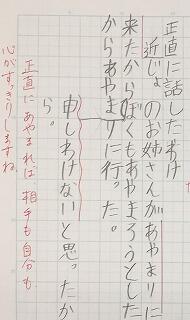 正直に話したわけ
近じょのお姉さんがあやまりに
来たからぼくもあやまろうとした
からあやまりに行った。
申しわけないと思ったか
ら。
正直にあやまれば、相手も自分も
心がすっきりしますね。